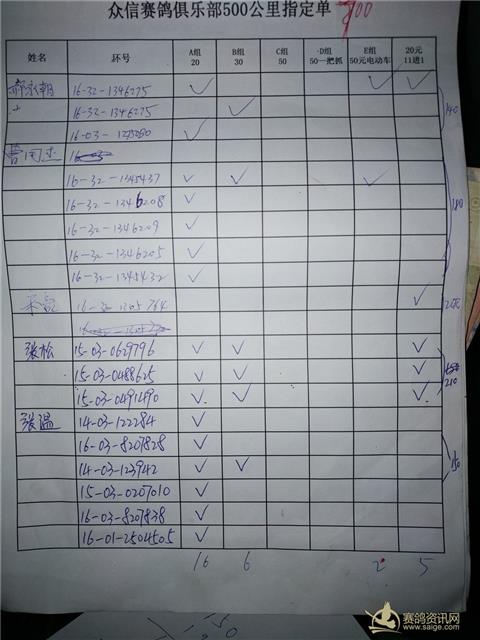 众信赛鸽俱乐部500公里指定单 700
姓名 环号 A组 20 B组 30 C组 50 D组 50一把抓 E组 50元电动车 20元 11进1
郝永朝 16-32-1346275 ✓ ✓ ✓
16-32-1346275 ✓
16-03- ✓ 140
曹国杰
16-32-1345437 ✓ ✓ ✓
16-32-1346208 ✓ 180
16-32-1346209 ✓
16-32-1346205 ✓
16-32-1345432 ✓
16-32-1305764 ✓
张松 15-03-0629796 ✓ ✓ ✓
15-03-0488625 ✓ ✓ ✓ 210
15-03-0491490 ✓ ✓ ✓
张温 14-03-122284 ✓
16-03-8207828 ✓
14-03-123942 ✓ ✓ 150
15-03-0207010 ✓
16-03-8207838 ✓
16-01-2504505 ✓
16 6 2 5
赛鸽资讯网
www.saige.com